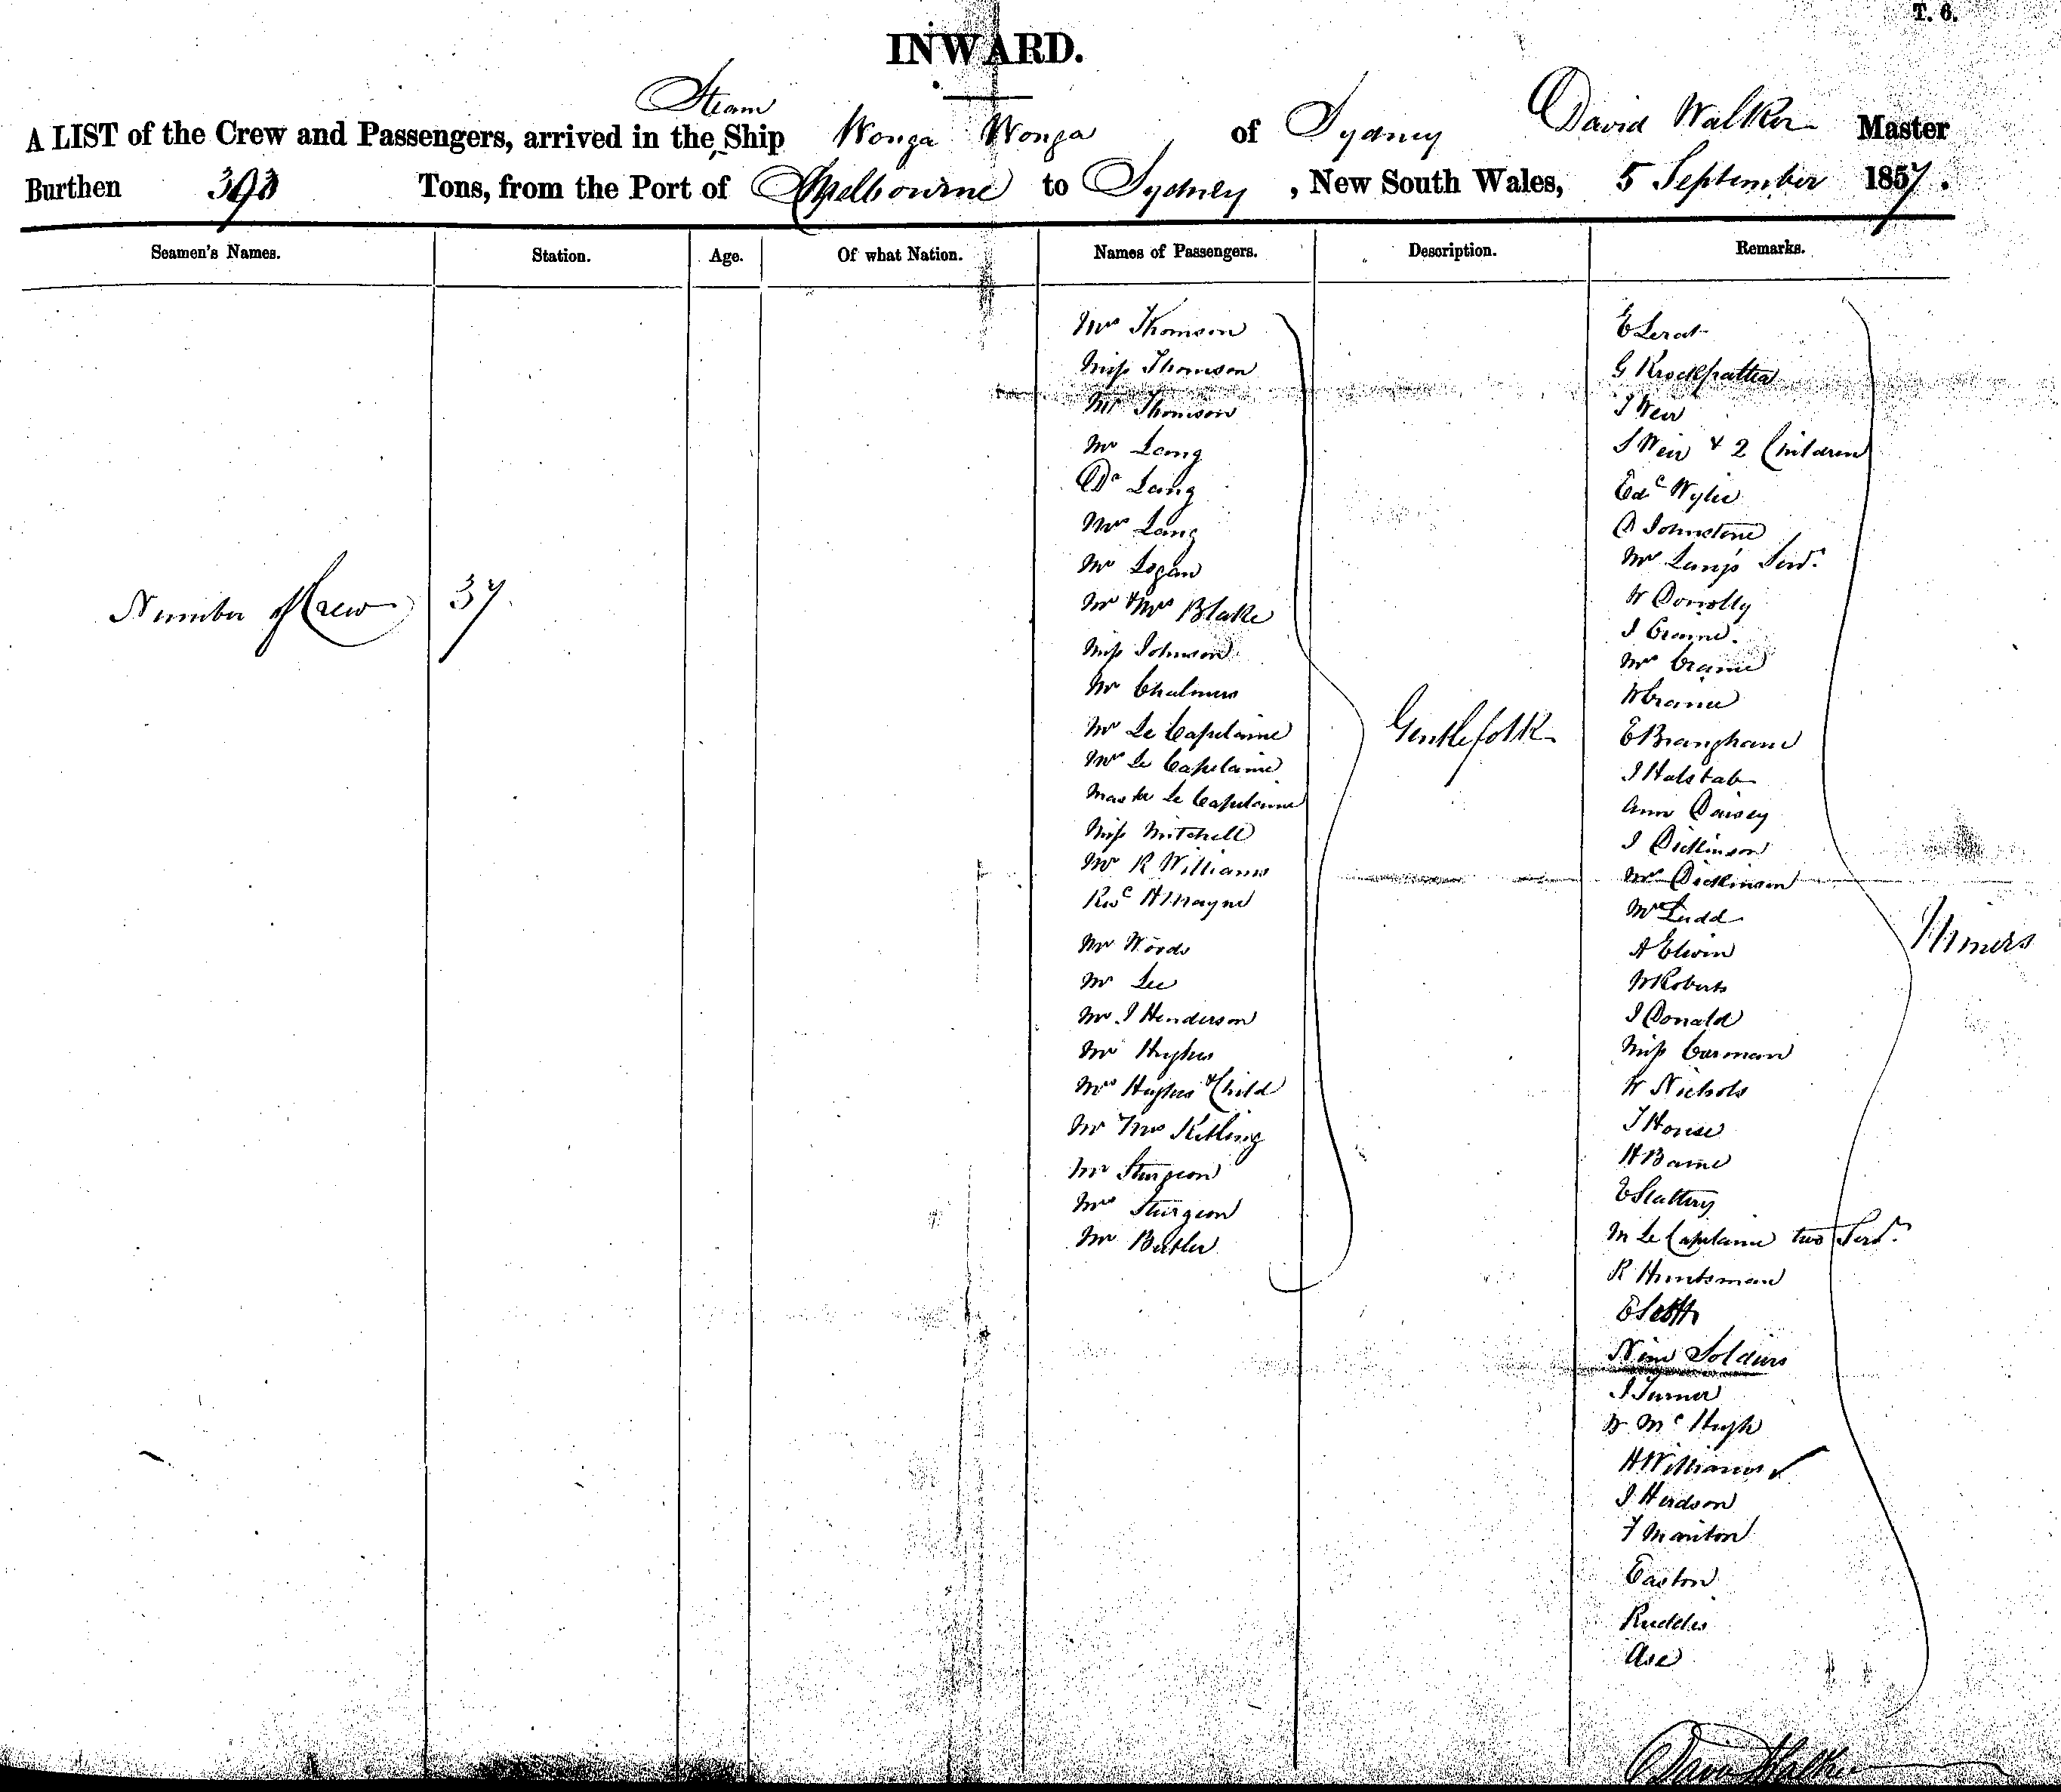 T. 6.
INWARD.
Steam
A LIST of the Crew and Passengers, arrived in the Ship Wonga Wonga of Sydney David Walker Master
Burthen 393 Tons, from the Port of Melbourne to Sydney, New South Wales, 5 September 1857.
Seamen's Names. Station. Age. Of what Nation. Names of Passengers. Description. Remarks.
Number of Crew 37
Mrs Thomson
Miss Thomson
Mr Thomson
Mr Lang
Dr Lang
Mrs Lang
Mr Logan
Mr & Mrs Blake
Miss Johnson
Mr Chalmers
Mr Le Capelaine
Mrs Le Capelaine
Master Le Capelaine
Miss Mitchell
Mr R Williams
Revd H Mayne
Mr Woods
Mr Lee
Mr J Henderson
Mr Hughes
Mrs Hughes & Child
Mr Mrs
Mr Sturgeon
Mrs Sturgeon
Mr Butler
Gentlefolk
E
G
J Weir
S Weir & 2 Children
Wylie
A Johnstone
Mr Lang's Servt
W Donolly
J Craine
Mrs Craine
W Craine
E Brangham
J
Ann Daisey
J Dickinson
Mrs Dickinson
Mr Ludd
A Elwin
W Roberts
J Donald
Miss Carman
W Nichols
J House
H Baine
E Slattery
M Le Capelaine two Servt
R Huntsman
E Scott
Nine Soldiers
J Turner
W McHugh
H Williams
J Herdson
F Manton
Easton
Ruddles
Ase
David Walker